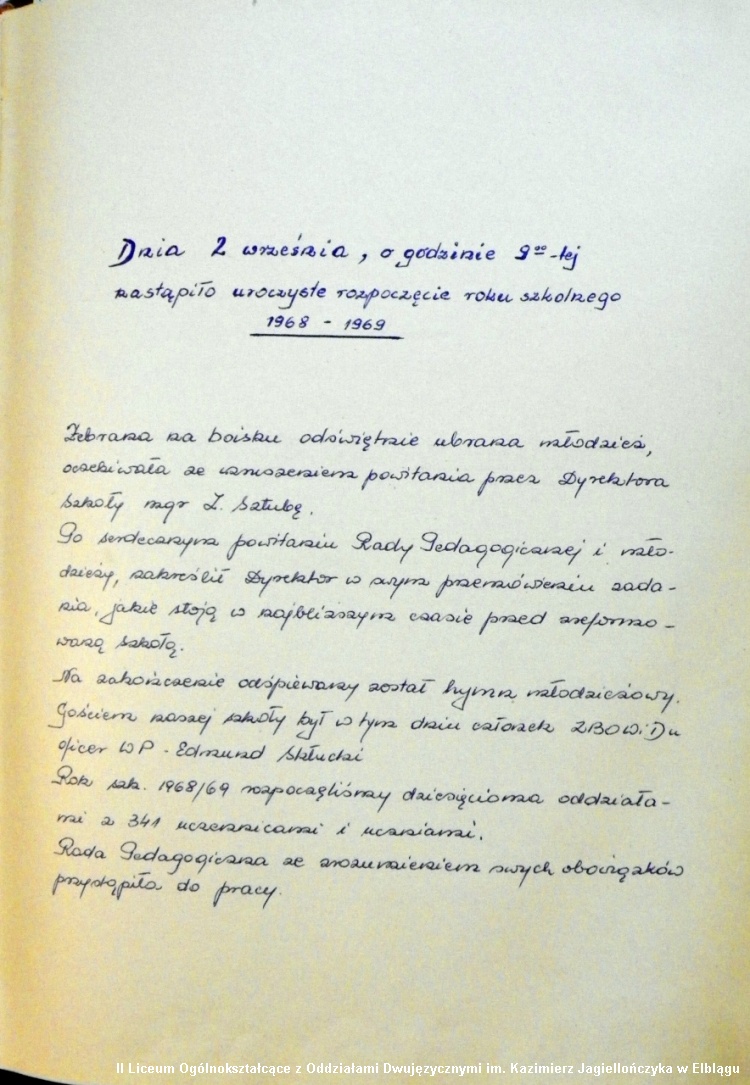 Dnia 2 września, o godzinie 9⁰⁰-tej
nastąpiło uroczyste rozpoczęcie roku szkolnego
1968 - 1969
Zebrana na boisku odświętnie ubrana młodzież,
oczekiwała ze wzruszeniem powitania przez Dyrektora
Szkoły mgr Z. Sztubę.
Po serdecznym powitaniu Rady Pedagogicznej i mło-
dzieży, zakreślił Dyrektor w swym przemówieniu zada-
nia, jakie stoją w najbliższym czasie przed zreformo-
waną szkołą.
Na zakończenie odśpiewany został hymn młodzieżowy.
Gościem naszej szkoły był w tym dniu członek ZBOWiDu
oficer WP - Edmund
Rok szk. 1968/69 rozpoczęliśmy dziesięcioma oddziała-
mi z 341 uczennicami i uczniami.
Rada Pedagogiczna ze zrozumieniem swych obowiązków
przystąpiła do pracy.
II Liceum Ogólnokształcące z Oddziałami Dwujęzycznymi im. Kazimierz Jagiellończyka w Elblągu